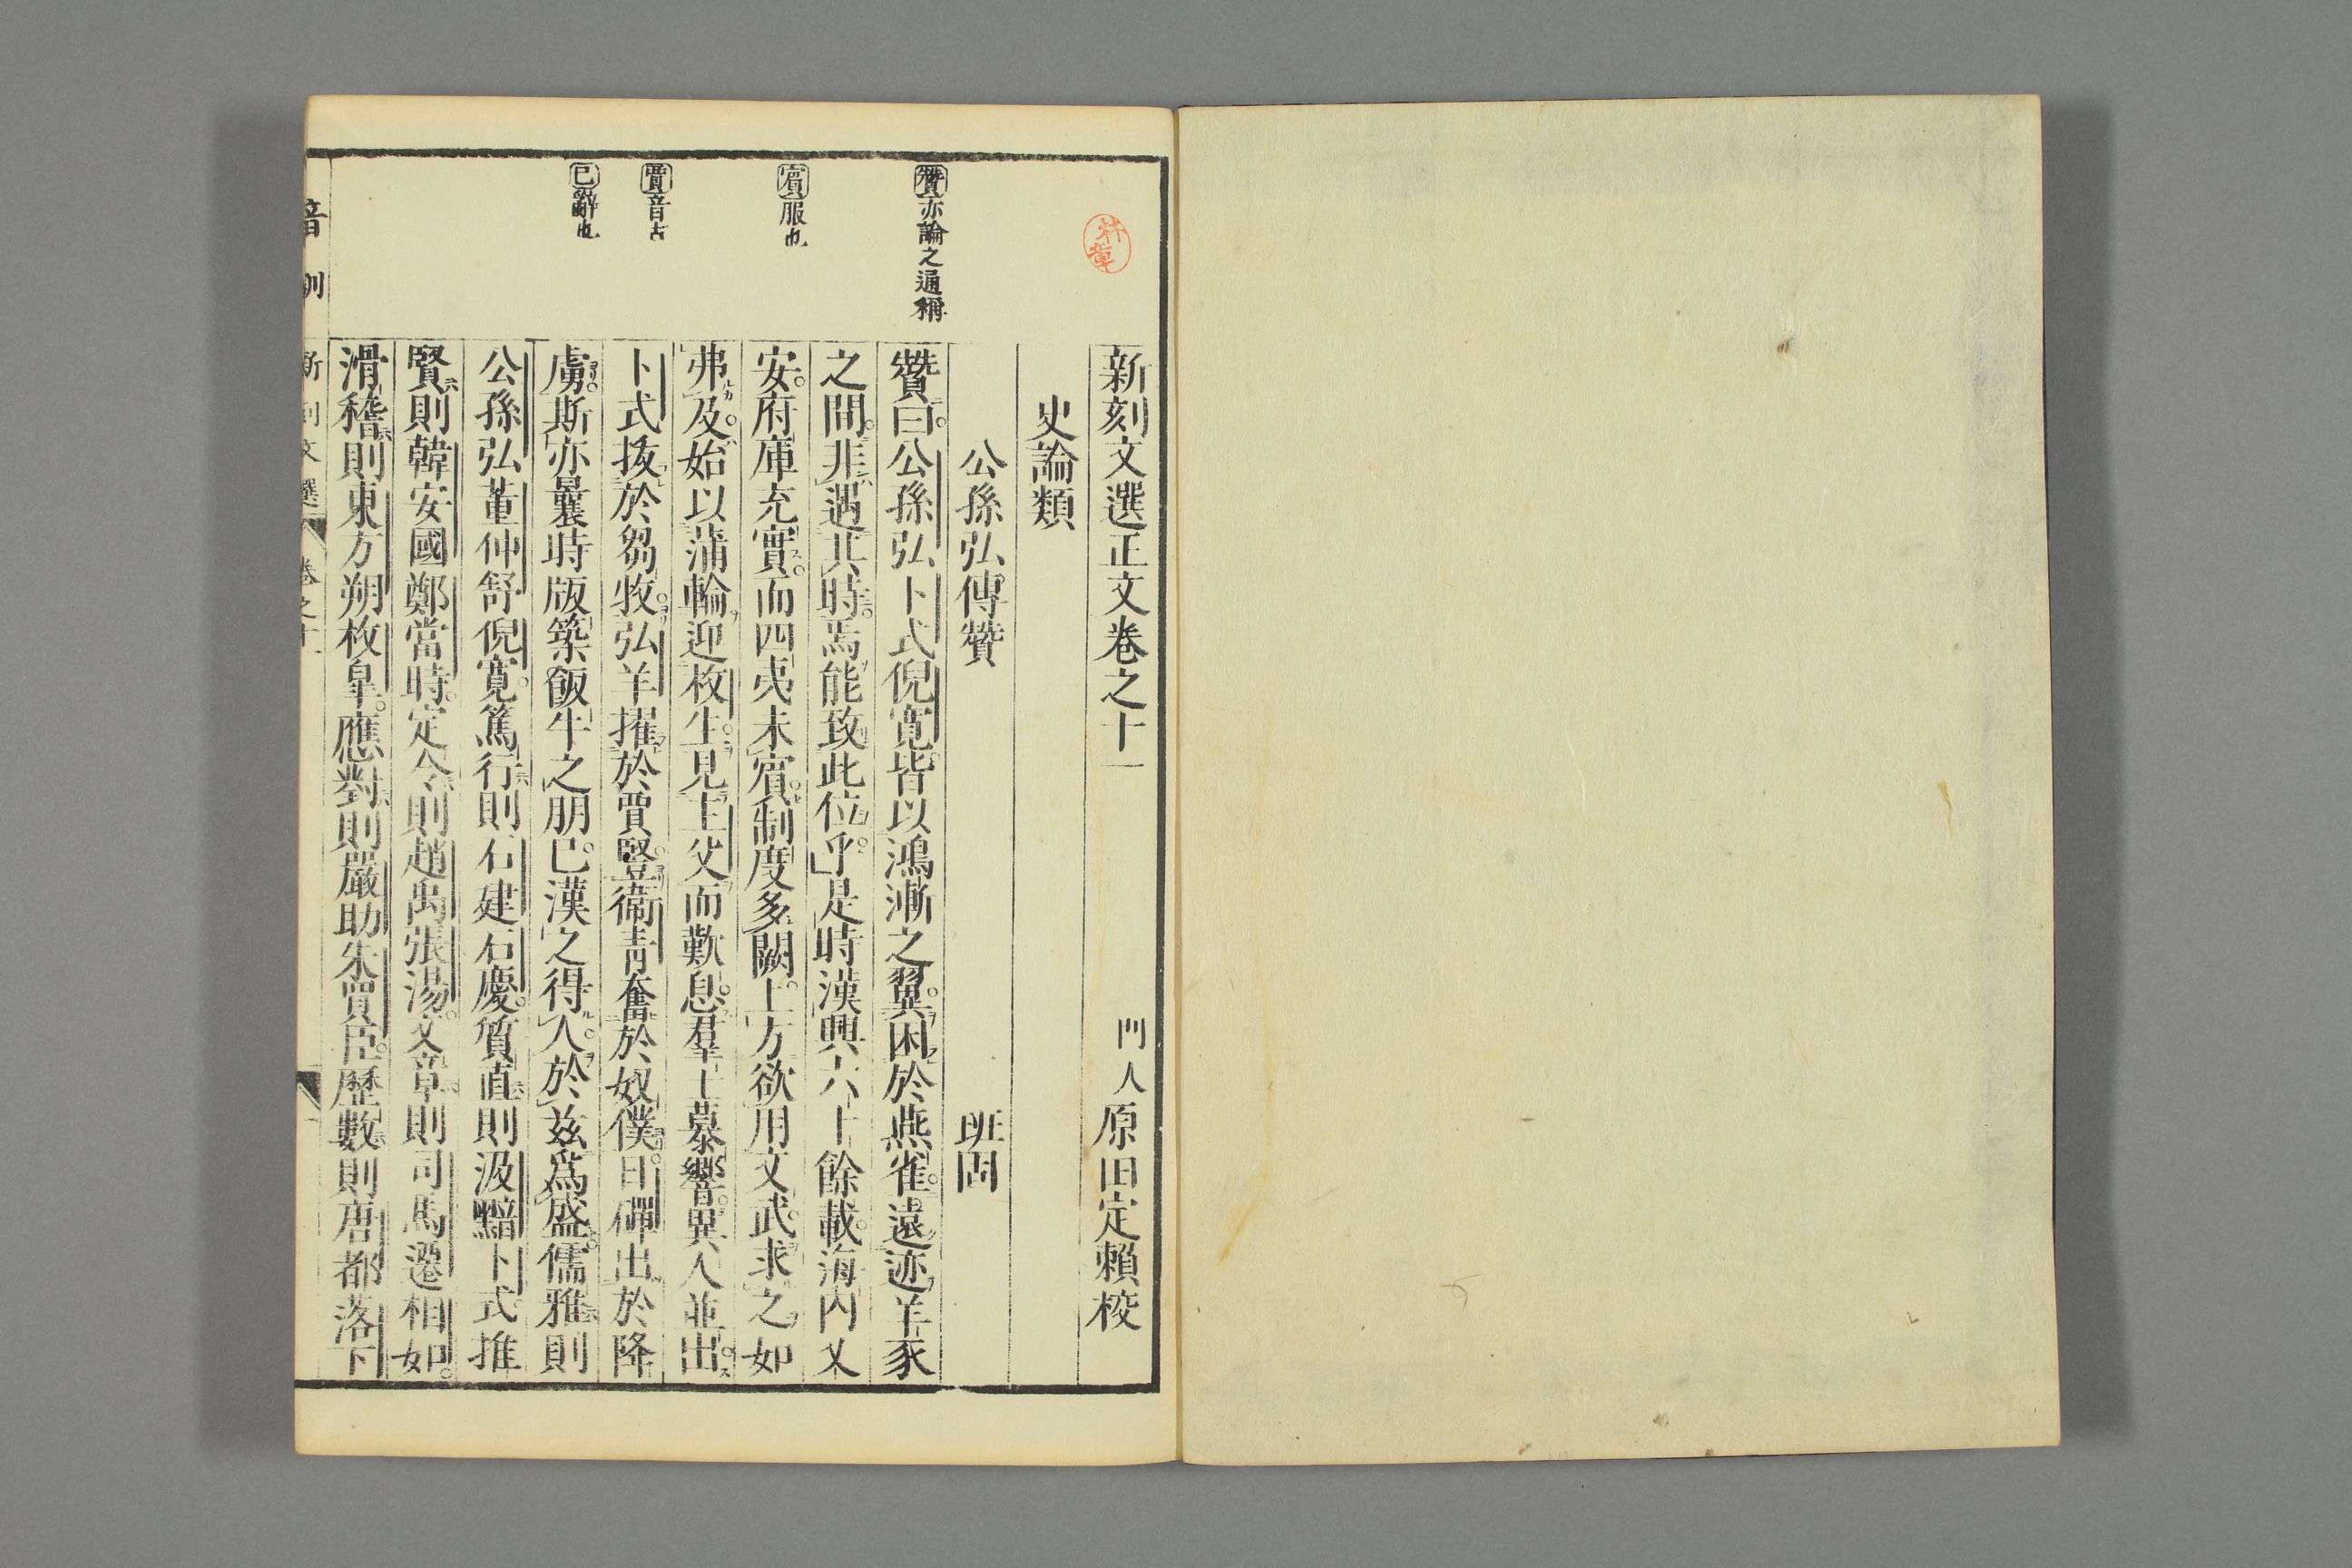 新刻文選正文卷之十一
門人原田定賴校
史論類
公孫弘傳贊 班固
贊曰公孫弘卜式倪寬皆以鴻漸之翼困於燕雀遠迹羊豕
之間非遇其時焉能致此位乎是時漢興六十餘載海內乂
安府庫充實而四夷未賓制度多闕上方欲用文武求之如
弗及始以蒲輪迎枚生見主父而歎息羣士慕嚮異人並出
卜式拔於芻牧弘羊擢於賈豎衞靑奮於奴僕日磾出於降
虜斯亦曩時版築飯牛之朋已漢之得人於兹爲盛儒雅則
公孫弘董仲舒倪寬篤行則石建石慶質直則汲黯卜式推
賢則韓安國鄭當時定令則趙禹張湯文章則司馬遷相如
滑稽則東方朔枚皐應對則嚴助朱買臣歷數則唐都落下
贊亦論之通稱
賓服也
賈音古
已辭也
音訓
新刻文選 卷之十一
林章